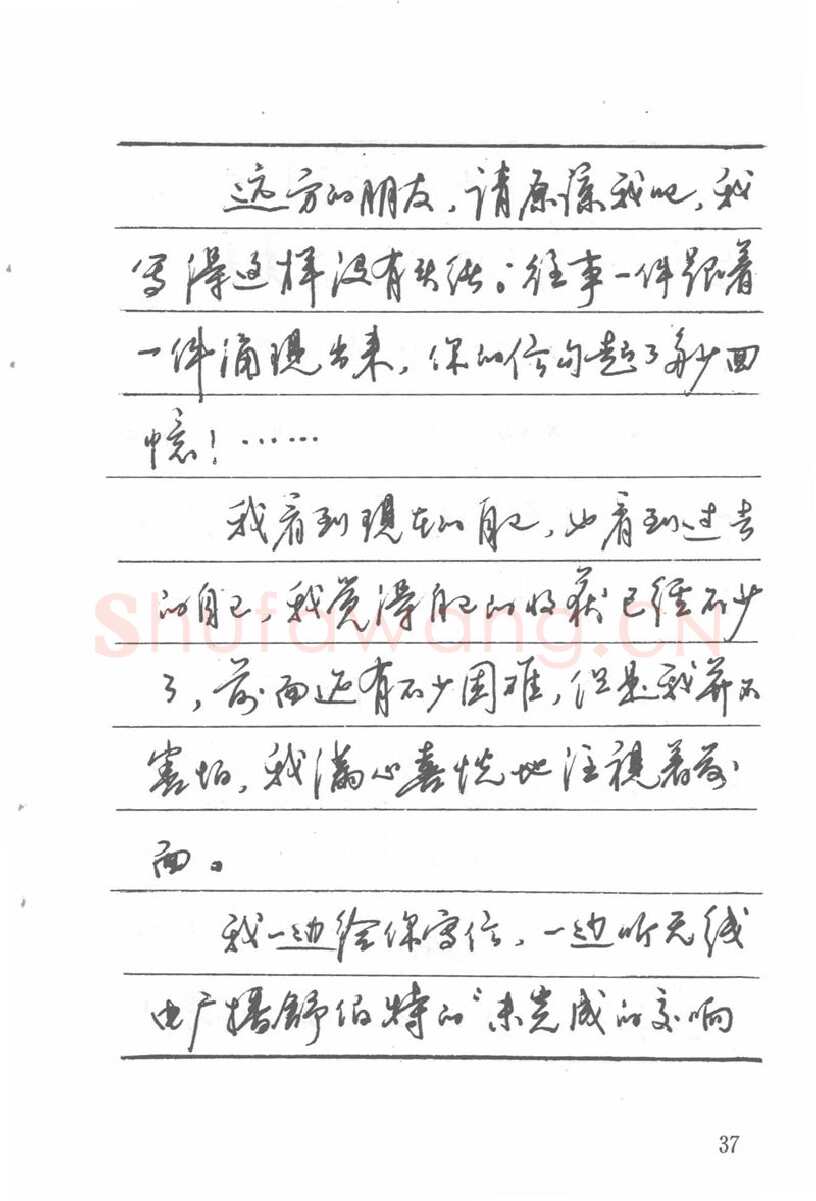 远方的朋友，请原谅我吧，我
写得这样没有头绪。往事一件跟着
一件涌现出来，你的信勾起了多少回
忆！……
我看到现在的自己，也看到过去
的自己，我觉得自己的收获已经不少
了，前面还有不少困难，但是我并不
害怕，我满心喜悦地注视着前
面。
我一边给你写信，一边听无线
电广播舒伯特的“未完成的交响
37
Shufawang.CN